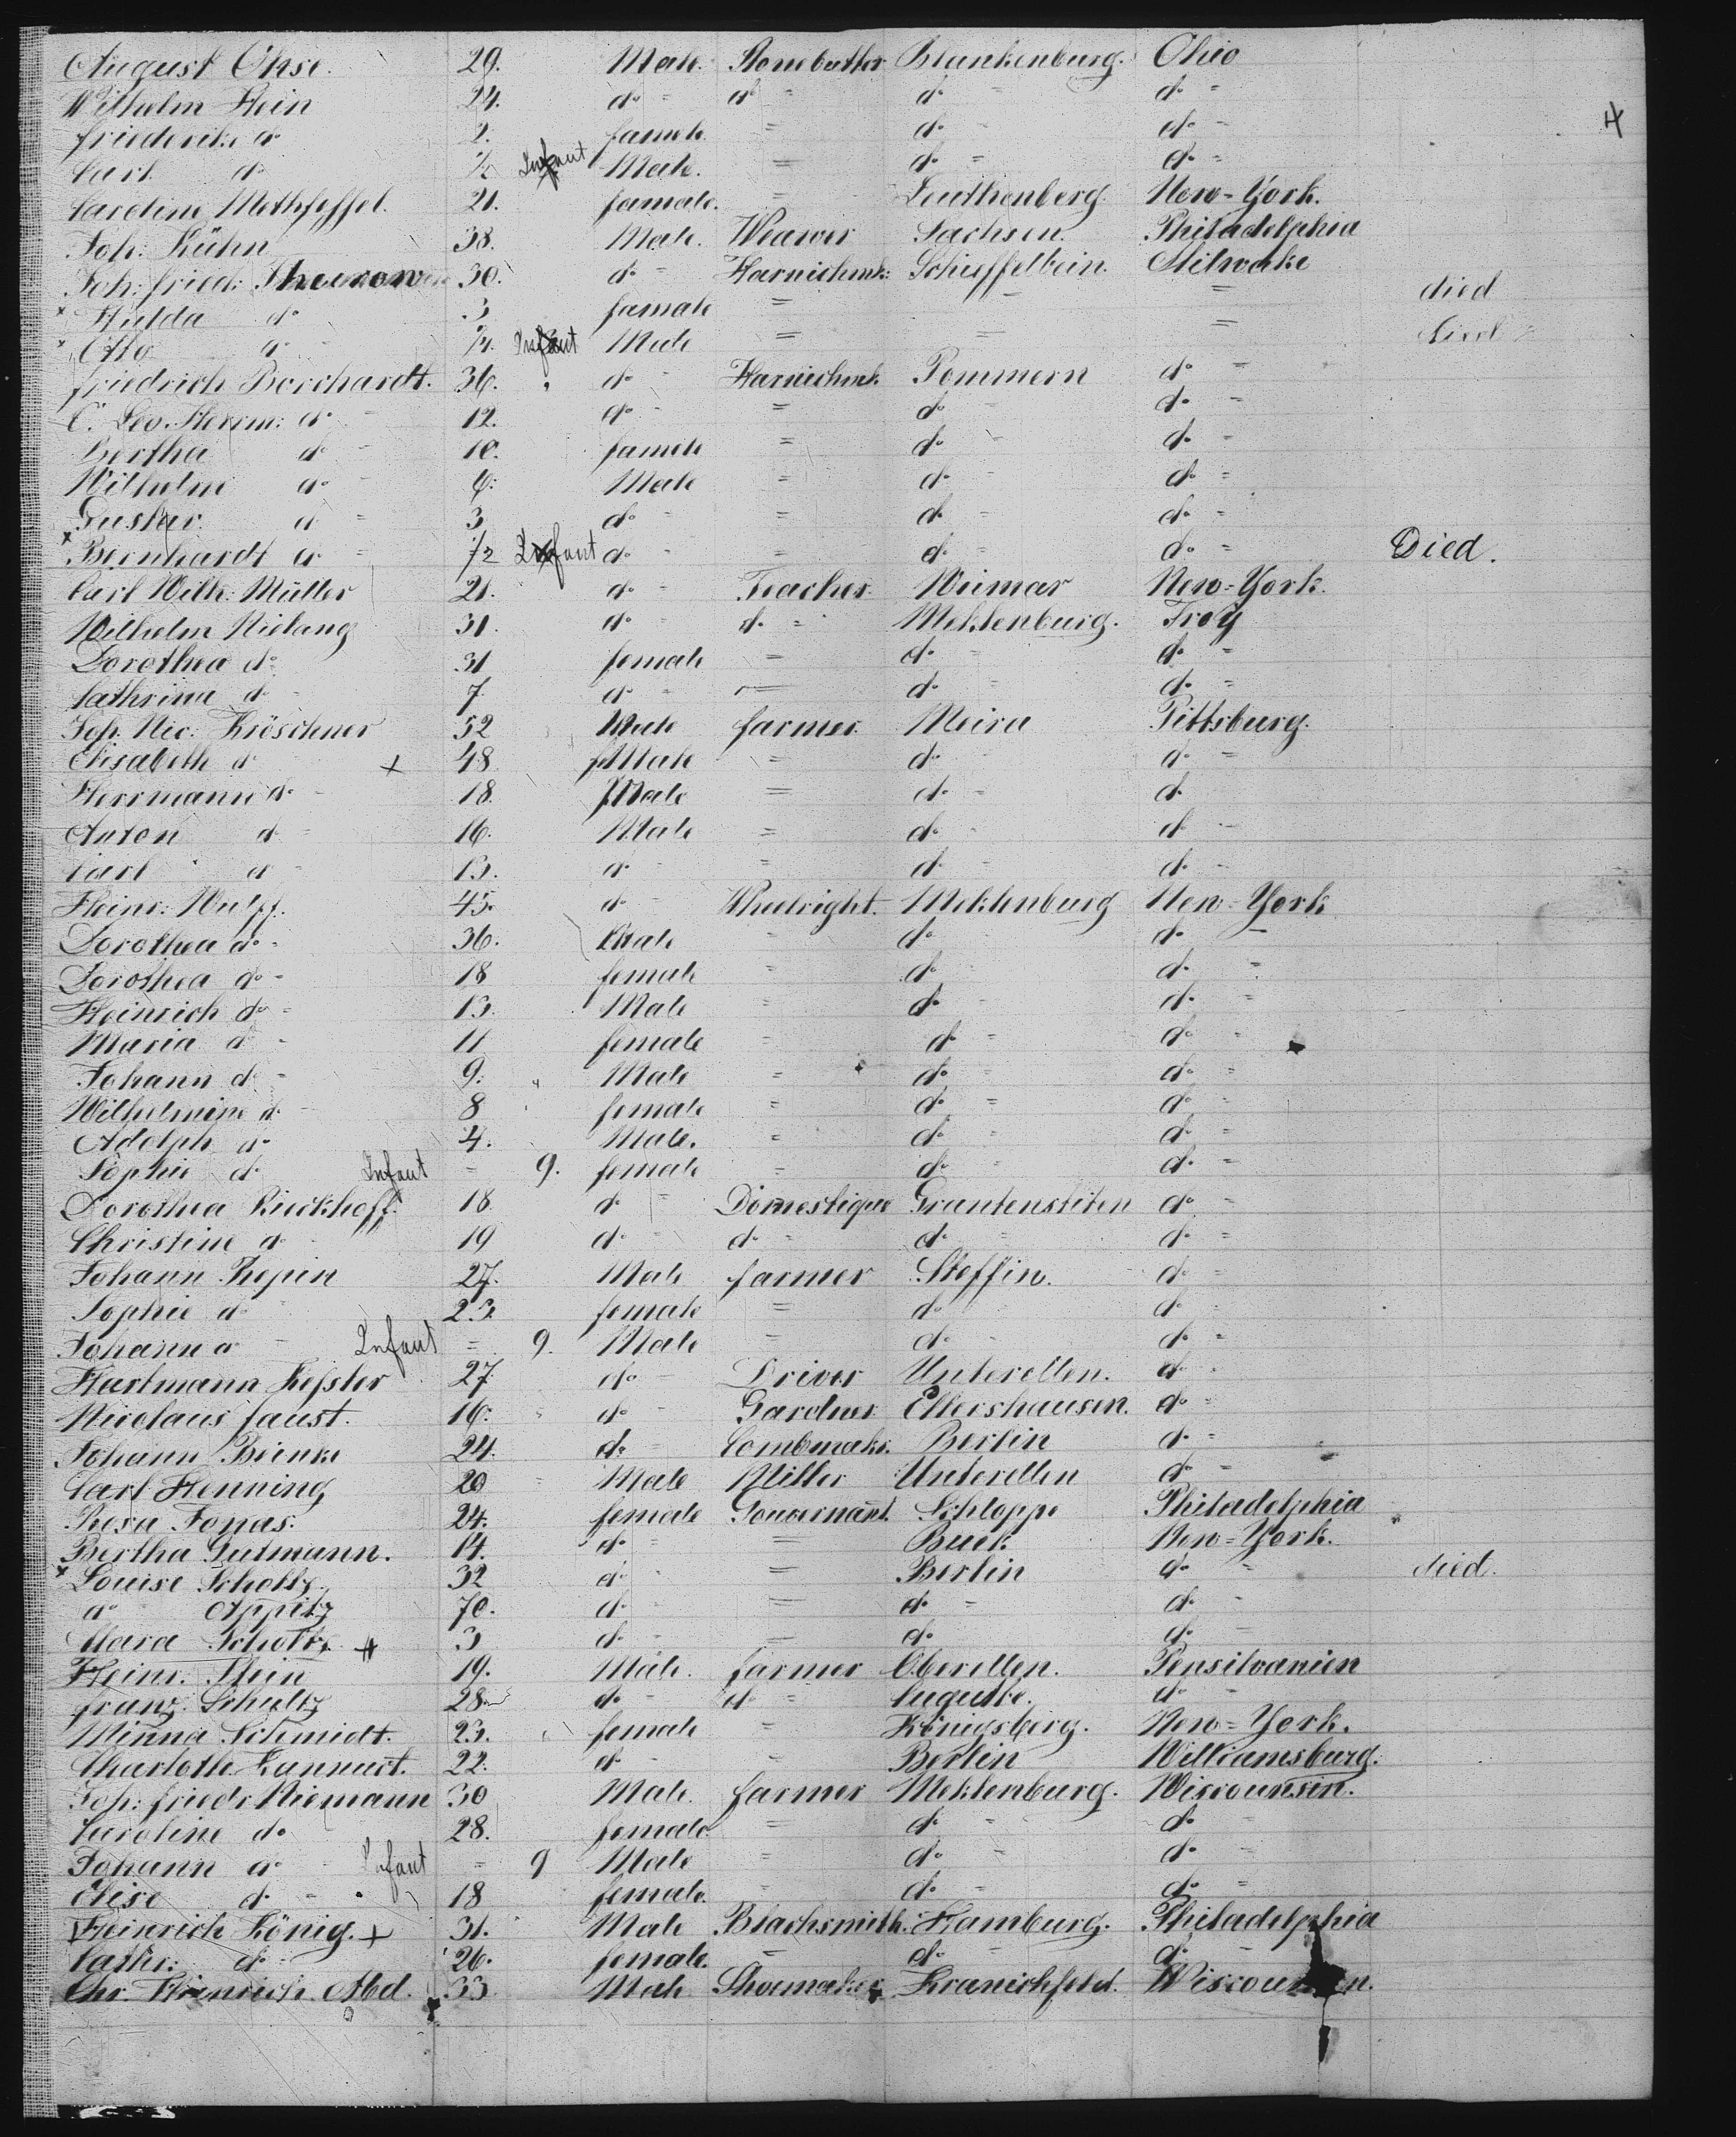 4
August Ohse. 29. Male. Blankenburg. Ohio
Wilhelm Stein 24. do = do = do = do =
Friederike do 2. famele = do = do =
Carl do 1/2 Infant Male. = do = do =
Caroline Methfessel. 21. famale. = Leuthenberg. New-York.
Joh: Kühn 38. Male. Weawer Sachsen. Philadelphia
Joh: fried: Thurow 30. do = Harnischmk: Schieffelbein. Milwake
x Hulda do 3 famale = = died
x Otto do 1/4. Infant Male = = = died
Friedrich Borchardt. 36. do Harnischmk Pommern do =
C. Leo. Herrm: do 12. do = = do do =
Bertha do 10. famele = do do =
Wilhelm do 6: Male = do do =
Gustav. do = 3 do = = do do =
x Bernhardt do = 1/2 Infant do = do = do = Died.
Carl Wilh: Müller 21. do = Teacher. Weimar New-York.
Wilhelm Nielang 31. do = do = Meklenburg. Troy
Dorothea do 31 female = do = do =
Cathrina do 7 do = = do = do =
Joh. Nic. Kröschner 52 Male farmer. Meira Pittsburg.
Elisabeth do x 48 feMale = do do =
Herrmann do 18. Male = do = do
Anton do = 16. Male = do do =
Carl do 13. do = do do =
Heinr: Wulff. 45. do = Wheelright. Meklenburg New-York
Dorothea do = 36. Male do do =
Dorothea do = 18 female = do do =
Heinrich do = 13. Male = do do =
Maria do = 11 female = do = do =
Johann do = 9. Male = do = do =
Wilhelmine do 8 female = do = do =
Adolph do 4. Male. = do = do =
Sophie do Infant = 9. female = do = do =
Dorothea Rieckhoff. 18. do = Domestique Grantenstiten do =
Christine do 19 do = do = do = do =
Johann Repin 27. Male farmer Steffin. do =
Sophie do 23. female = do do =
Johann do Infant = 9. Male = do do =
Hartmann Kessler 27 do = Driver Unterellen. do
Nicolaus Faust. 16. do = Gardner Ellershausen. do =
Johann Beinke 24. do = Combmakr. Berlin do =
Carl Henning 20 Male Miller Unterellen do =
Rosa Jonas. 24. female Gouvernant. Schloppe Philadelphia
Bertha Gutmann. 14. do = = Buck New-York.
x Louise Scholtz 32 do = Berlin do = died.
do Appitz 70. do = do = do =
Clara Scholtz 3 do = = do do =
Heinr. Stein 19. Male. farmer Oberellen. Pensilvanien
Franz Schultz 28 do = do = do =
Minna Schmidt. 23. female = Königsberg. New-York.
Charlotte 22. do = = Berlin Williamsburg.
Joh: friedr Niemann 30 Male. farmer Meklenburg. Wiscounsin.
Caroline do 28. female. = do = do
Johann do Infant = 9 Male = do = do =
Elise do = 18 female. = do = do =
Heinrich König. x 31. Male Blacksmith. Hamburg. Philadelphia
Cathr: do 26. female. = do = do =
Chr. Heinrich Abd. 33. Male Shoemaker Kranichfeld. Wiscounsin.